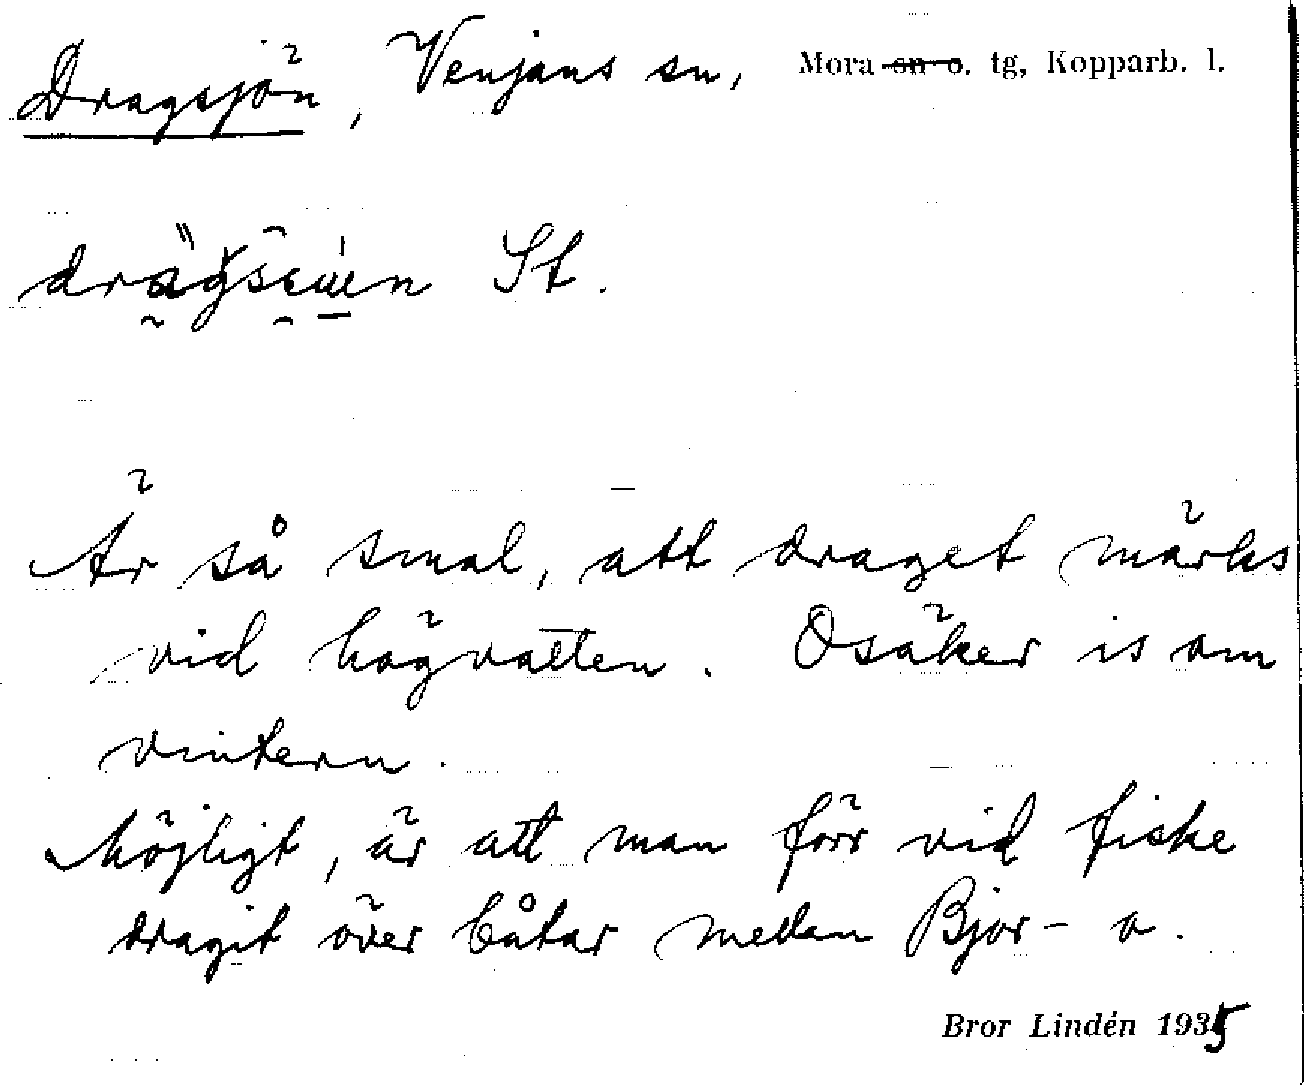 Dragsjön, Venjans sn, Mora sn o. tg, Kopparb. l.
St.
Är så smal, att draget märks
vid högvatten. Osäker is om
vintern.
Möjligt, är att man förr vid fiske
dragit över båtar mellan Bjor- o.
Bror Lindén 1935